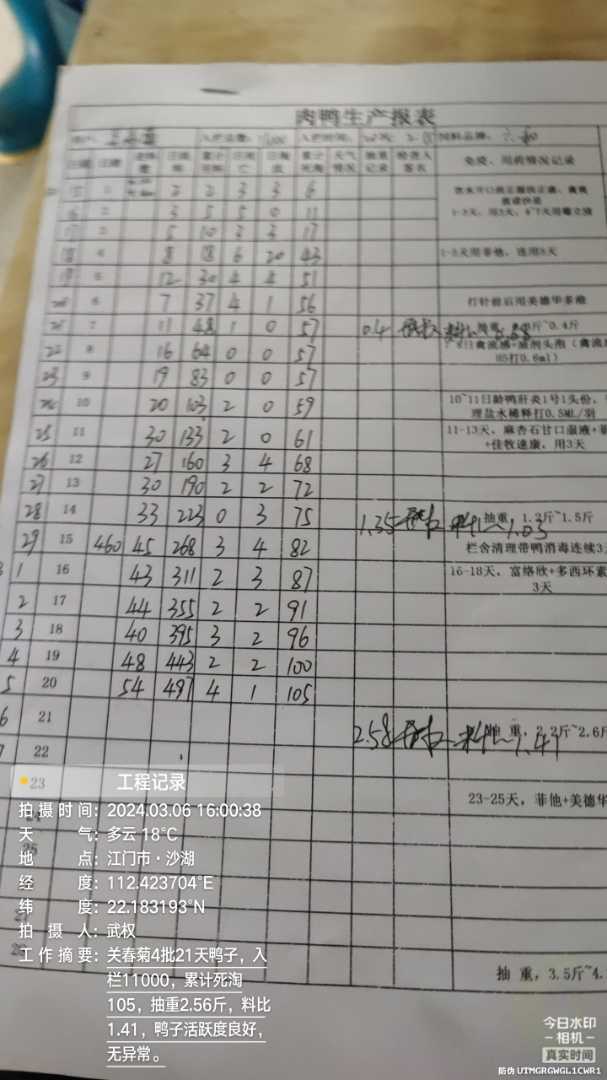 肉鸭生产报表
入栏总数: 入栏时间: 饲料品牌: 六和
日期 日龄 累计 日死亡 日淘 累计死淘 天气情况 抽重记录 检查人签名 免疫、用药情况记录
1 2 2 3 3 6
16 2 3 5 5 0 11
17 3 5 10 3 3 17
18 4 8 18 6 20 43 1-3天用菲他,连用3天
19 5 12 30 4 4 51
20 6 7 37 4 1 56 打针前后用美德华多维
21 7 11 48 1 0 57 0.4
22 8 16 64 0 0 57
23 9 19 83 0 0 57
24 10 20 103 2 0 59 10~11日龄鸭肝炎1号1头份,
理盐水稀释打0.5ML/羽
25 11 30 133 2 0 61 11-13天,麻杏石甘口服液+
+佳牧速康,用3天
26 12 27 160 3 4 68
27 13 30 190 2 2 72
28 14 33 223 0 3 75 1.35 抽重,1.2斤~1.5斤
29 15 460 45 268 3 4 82 栏舍清理带鸭消毒连续3
1 16 43 311 2 3 87 16-18天,富络欣+多西环素
3天
2 17 44 355 2 2 91
3 18 40 395 3 2 96
4 19 48 443 2 2 100
5 20 54 497 4 1 105
6 21 2.58 抽 重,2.2斤~2.6斤
7 22
23 23-25天,菲他+美德华
抽 重,3.5斤~4.
工程记录
拍摄时间:2024.03.06 16:00:38
天 气:多云 18°C
地 点:江门市·沙湖
经 度:112.423704°E
纬 度:22.183193°N
拍 摄 人:武权
工作摘要:关春菊4批21天鸭子,入
栏11000,累计死淘
105,抽重2.56斤,料比
1.41,鸭子活跃度良好,
无异常。
今日水印
-相机-
真实时间
防伪 UTMGRGWGL1CWR1